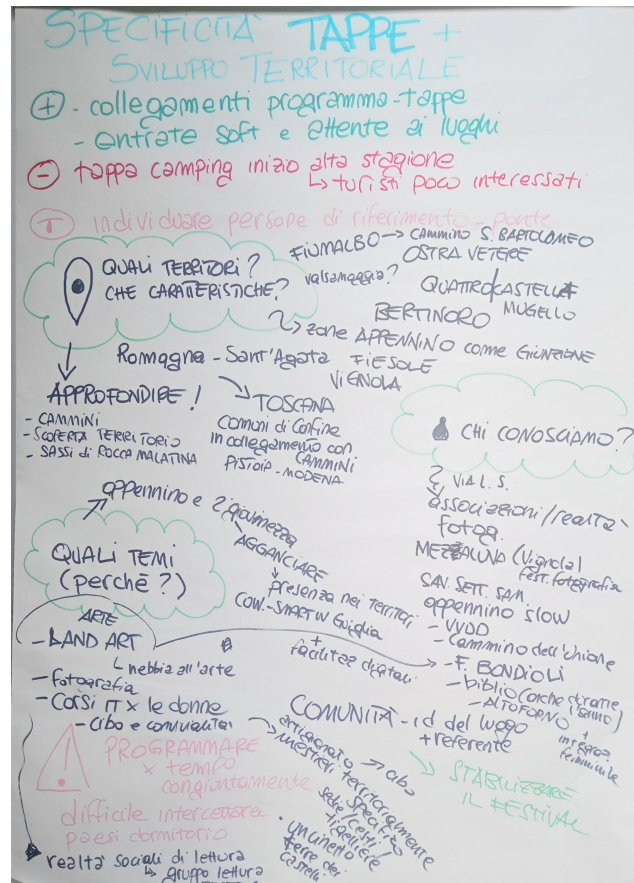 SPECIFICITÀ TAPPE +
SVILUPPO TERRITORIALE
+ - collegamenti programma-tappe
- entrate soft e attente ai luoghi
- tappa camping inizio alta stagione
↳ turisti poco interessati
T individuare persone di riferimento - ponte
QUALI TERRITORI?
CHE CARATTERISTICHE?
FIUMALBO → CAMMINO S. BARTOLOMEO
OSTRA VETERE
valsamoggia?
QUATTROCASTELLA
MUGELLO
BERTINORO
↳ zone APPENNINO come GIUNZIONE
Romagna - Sant'Agata
FIESOLE
VIGNOLA
APPROFONDIRE!
- CAMMINI
- SCOPERTA TERRITORIO
- SASSI di ROCCA MALATINA
TOSCANA
Comuni di Confine
in collegamento con
CAMMINI
PISTOIA - MODENA
CHI CONOSCIAMO?
VIA L. S.
associazioni/realtà
fotog.
MEZZALUNA (Vignola)
Fest. fotografia
SAV. SETT. SAM.
appennino slow
- VVDD
- Cammino dell'Unione
- F. BONDIOLI
- biblio
- ALTOFORNO
+
integraz.
femminile
appennino e
QUALI TEMI
(perché?)
AGGANCIARE
presenza nei territori
COW. - SMART W Guiglia
+
facilitaz digitali
ARTE
- LAND ART
↳ nebbia all'arte
- fotografia
- Corsi IT x le donne
- cibo e convivialità
COMUNITÀ - id del luogo
+ referente
artigianato → cibo
mestieri territorialmente
specifico
sedie/cesti/
tigelliere
uncinetto
terre dei
castelli
STABILIZZARE
IL FESTIVAL
! PROGRAMMARE
x tempo
congiuntamente
difficile intercettare
paesi dormitorio
realtà sociali di lettura
↳ gruppo lettura